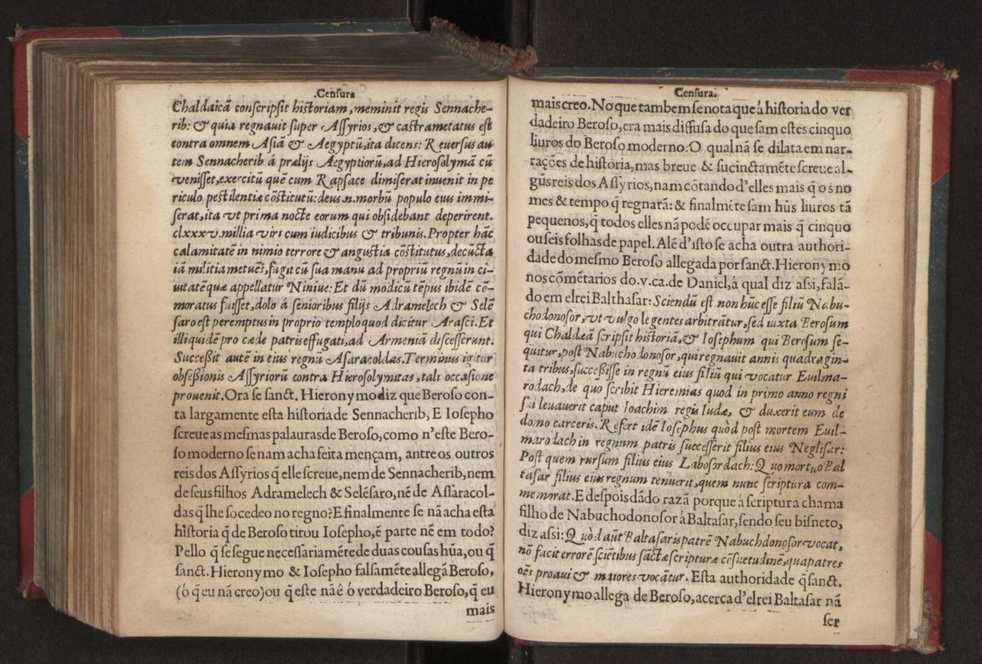 .Censura
Chaldaicã conscripsit historiam, meminit regis Sennache-
rib: & quia regnauit super Assyrios, & castrametatus est
contra omnem Asiã & Aegyptũ, ita dicens: Reuersus au
tem Sennacherib à prælijs Aegyptiorũ, ad Hierosolymã cũ
venisset, exercitũ quẽ cum Rapsace dimiserat inuenit in pe
riculo pestilentiæ cõstitutũ: deus.n.morbũ populo eius immi-
serat, ita vt prima nocte eorum qui obsidebant deperirent.
cl.xxx.v.millia viri cum iudicibus & tribunis. Propter hãc
calamitatẽ in nimio terrore & angustia cõstitutus, decũcta
iã militia metuẽs, fugit cũ sua manu ad propriũ regnũ in ci-
uitatẽ quæ appellatur Niniue: Et dũ modicũ tẽpus ibidẽ cõ-
moratus fuisset, dolo á senioribus filijs Adramelech & Selẽ
saro est peremptus in proprio templo quod dicitur Arasci. Et
illi quidẽ pro cæde patris effugati, ad Armeniã discesserunt.
Successit autẽ in eius regnũ Asaracoldas. Terminus igitur
obsessionis Assyriorũ contra Hierosolymitas, tali occasione
prouenit. Ora se sanct, Hieronymo diz que Beroso con-
ta largamente esta historia de Sennacherib, E Iosepho
screue as mesmas palauras de Beroso, como n'este Bero-
so moderno se nam acha feita mençam, antre os outros
reis dos Assyrios q̃ elle screue, nem de Sennacherib, nem
de seus filhos Adramelech & Selẽsaro, nẽ de Assaracol-
das q̃ lhe socedeo no regno? E finalmente se nã acha esta
historia q̃ de Beroso tirou Iosepho, ẽ parte nẽ em todo?
Pello q̃ se segue necessariamẽte de duas cousas hũa, ou q̃
sanct. Hieronymo & Iosepho falsamẽte allegã Beroso,
(ò q̃ eu nã creo) ou q̃ este nã é ò verdadeiro Beroso, q̃ eu
mais
Censura.
mais creo. No que tambem se nota que á historia do ver
dadeiro Beroso, era mais diffusa do que sam estes cinquo
liuros do Beroso moderno: O qual nã se dilata em nar-
rações de historia, mas breue & sucinctamẽte screue al-
gũs reis dos Assyrios, nam cõtando d'elles mais q̃ os no
mes & tempo q̃ regnarã: & finalmẽte sam hũs liuros tã
pequenos, q̃ todos elles nã podẽ occupar mais q̃ cinquo
ou seis folhas de papel. Alẽ d'isto se acha outra authori-
dade do mesmo Beroso allegada por sanct. Hieronymo
nos cõmẽtarios do.v.ca.de Daniel, á qual diz assi, falã-
do em el rei Balthasar: Sciendũ est non hũc esse filiũ Nabu-
chodonosor, vt vulgo legentes arbitrãtur, sed iuxta Berosum
qui Chaldeã scripsit historiã, & Iosephum qui Berosum se-
quitur, post Nabuchodonosor, qui regnauit annis quadragin-
ta tribus, successisse in regnũ eius filiũ qui vocatur Euilma-
rodach, de quo scribit Hieremias quod in primo anno regni
sui leuauerit caput Ioachim regis Iudæ, & duxerit eum de
domo carceris. Refert idẽ Iosephus quòd post mortem Euil-
marodach in regnum patris successerit filius eius Neglisar:
Post quem rursum filius eius Labosordach: Quo mortuo Bal
tasar filius eius regnum tenuerit, quem nunc scriptura com-
memorat. E despois dãdo razã porque á scriptura chama
filho de Nabuchodonosor á Baltasar, sendo seu bisneto,
diz assi: Quòd aũt Baltasaris patrẽ Nabuchdonosor vocat,
nõ facit errorẽ sciẽtibus sãctæ scripturæ cõsuetudinẽ, qua patres
oẽs proaui & maiores vocãtur. Esta authoridade q̃ sanct.
Hieronymo allega de Beroso, acerca d'el rei Baltasar nã
ser